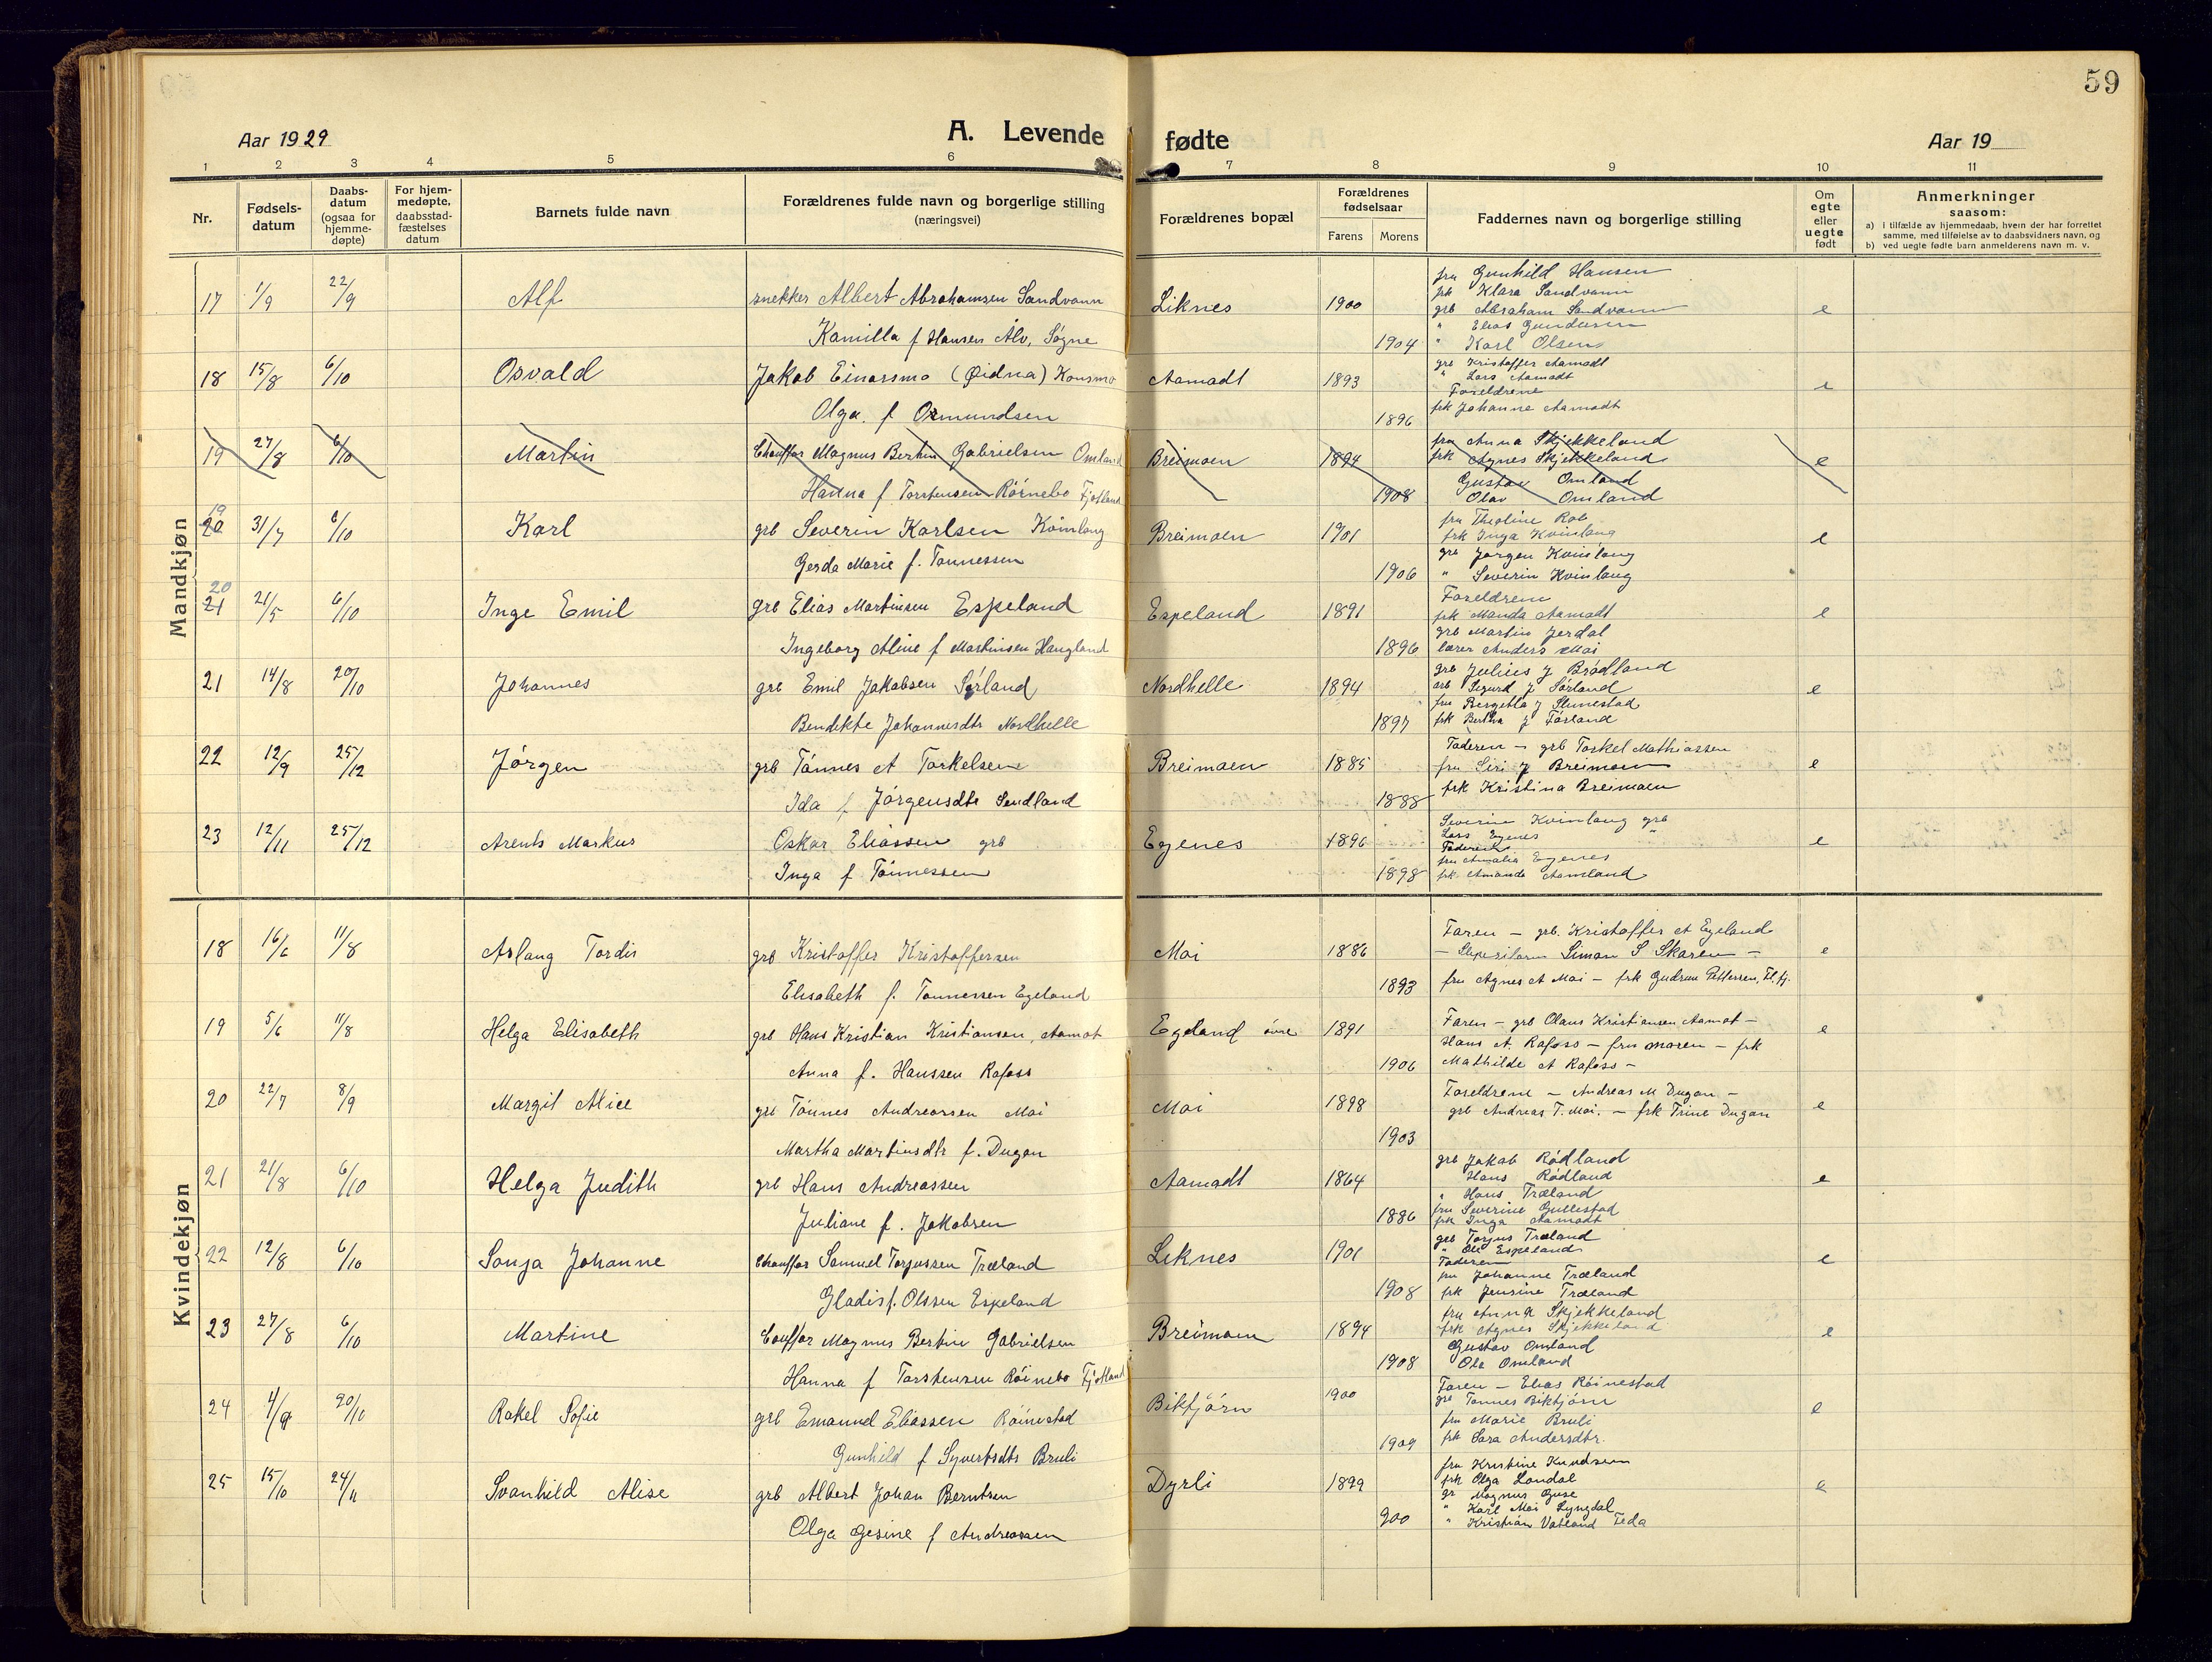 59
Aar 1929
A. Levende fødte
Aar 19
1 2 3 4 5 6 7 8 9 10 11
Nr.
Fødsels-
datum
Daabs-
datum
(ogsaa for
hjemme-
døpte)
For hjem-
medøpte,
daabsstad-
fæstelses
datum
Barnets fulde navn
Forældrenes fulde navn og borgerlige stilling
(næringsvei)
Forældrenes bopæl
Forældrenes
fødselsaar
Farens Morens
Faddernes navn og borgerlige stilling
Om
egte
eller
uegte
født
Anmerkninger
saasom:
a) i tilfælde av hjemmedaab, hvem der har forrettet
samme, med tilføielse av to daabsvidners navn, og
b) ved uegte fødte barn anmelderens navn m. v.
Mandkjøn
17 1/9 22/9 Alf snekker Albert Abrahamsen Sandvann Liknes 1900 e
Kamilla f Hansen Alv, Søgne 1904
fru Gunhild Hansen
frk Klara Sandvann
grb Abraham Sandvann
" Elias Gundersen
" Karl Olsen
18 15/8 6/10 Osvald Jakob Einarsmo (Øidna) Konsmo Aamodt 1893 e
Olga f Osmundsen 1896
grb Kristoffer Aamodt
" Lars Aamodt
Foreldrene
frk Johanne Aamodt
19 27/8 6/10 Martin Chauffør Magnus Bertin Gabrielsen Omland Breimoen 1894 e
Hanna f Torstensen Rørnebo Fjotland 1908
fru Anna Skjekkeland
frk Agnes Skjekkeland
Gustav Omland
Olav Omland
19
20 31/7 6/10 Karl grb Severin Karlsen Kvinlaug Breimoen 1901 e
Gerda Marie f. Tønnessen 1906
fru Theoline Rob
frk Inga Kvinlaug
grb Jørgen Kvinlaug
" Severin Kvinlaug
20
21 21/5 6/10 Inge Emil grb Elias Martinsen Espeland Espeland 1891 e
Ingeborg Aline f Martinsen Haugland 1896
Foreldrene
frk Manda Aamodt
grb Martin Jerdal
lærer Anders Moi
21 14/8 20/10 Johannes grb Emil Jakobsen Sørland Nordhelle 1894 e
Bendikte Johannesdtr Nordhelle 1897
grb Julius J Brødland
grb Sigurd J Sørland
fru Bergitta J Stunestad
frk Bertha J Førland
22 12/9 25/12 Jørgen grb Tønnes A Torkelsen Breimoen 1885 e
Ida f Jørgensdtr Sendland 1888
Faderen – grb Torkel Mathiassen
fru Siri J Breimoen
frk Kristina Breimoen
23 12/11 25/12 Arents Markus Oskar Eliassen grb Egenes 1896 e
Inga f Tønnessen 1898
Severine Kvinlaug grb
Lars Egenes "
Faderen
fru Amalia Egenes
frk Amanda Aamland
Kvindekjøn
18 16/6 11/8 Aslaug Tordis grb Kristoffer Kristoffersen Moi 1886 e
Elisabeth f. Tønnessen Egeland 1893
Faren – grb. Kristoffer A Egeland
Siman S Skaren –
fru Agnes A Moi – frk Gudrun Pettersen, Fl.fj.
19 5/6 11/8 Helga Elisabeth grb Hans Kristian Kristiansen, Aamot Egeland øvre 1891 e
Anna f. Hanssen Rafoss 1906
Faren – grb Olaus Kristiansen Aamot –
Hans A. Rafoss – fru Maren – frk
Mathilde A Rafoss –
20 22/7 8/9 Margit Alice grb Tønnes Andreassen Moi Moi 1898 e
Martha Martinsdtr f. Dugan 1903
Foreldrene – Andreas M Dugan –
grb Andreas T. Moi. – frk Trine Dugan
21 21/8 6/10 Helga Judith grb Hans Andreassen Aamodt 1864 e
Juliane f. Jakobsen 1886
grb Jakob Rødland
Hans Rødland
" Hans Træland
fru Severine Gullestad
frk Inga Aamodt
22 12/8 6/10 Sonja Johanne Chauffør Samuel Torjussen Træland Liknes 1901 e
Gladis f. Olssen Espeland 1908
grb Torjus Træland
" Ole Espeland
Faderen
fru Johanne Træland
frk Jensine Træland
23 27/8 6/10 Martine Couffør Magnus Bertin Gabrielsen Breimoen 1894 e
Hanna f Torstensen Røinebo Fjotland 1908
fru Anna Skjekkeland
frk Agnes Skjekkeland
Gustav Omland
Ola Omland
24 4/9 20/10 Rakel Sofie grb Emanuel Eliassen Røinestad Bikfjørn 1900 e
Gunhild f Syvertsdtr Bruli 1909
Faren – Elias Røinestad
grb Tønnes Bikfjørn
fru Marie Bruli
frk Sara Andersdtr.
25 15/10 24/11 Svanhild Alise grb Albert Johan Berntsen Dyrli 1899 e
Olga Gesine f Andreassen 900
fru Kristine Knudsen
frk Olga Londal
gr Magnus Guse
" Karl Moi Lyngdal
" Kristian Vatland Feda